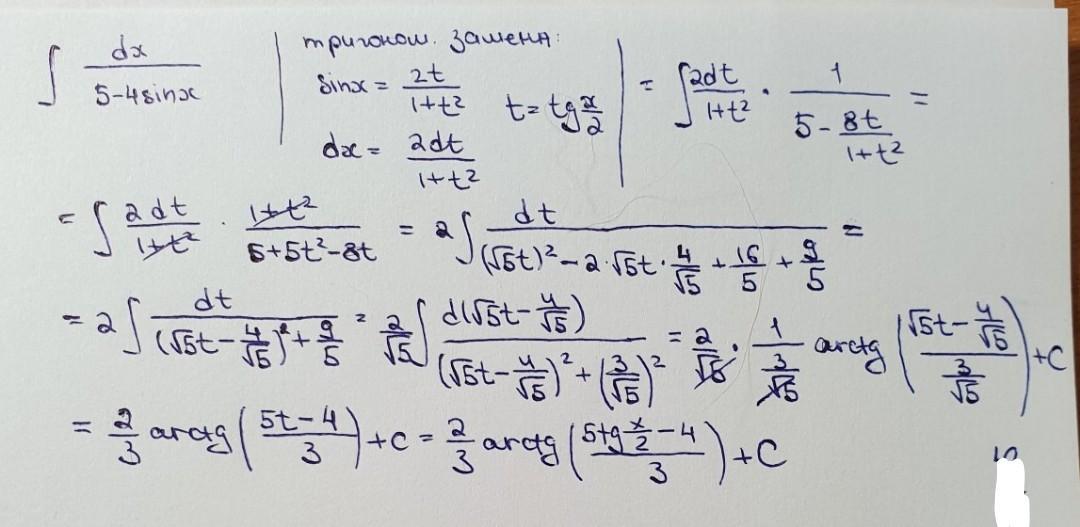 ∫ dx/(5-4sinx) | тригоном. замена: sinx = 2t/(1+t²) t = tg x/2 dx = 2dt/(1+t²) | = ∫ 2dt/(1+t²) · 1/(5 - 8t/(1+t²)) =
= ∫ 2dt/(1+t²) · (1+t²)/(5+5t²-8t) = 2∫ dt/((√5t)² - 2·√5t·4/√5 + 16/5 + 9/5) =
= 2∫ dt/((√5t - 4/√5)² + 9/5) = 2/√5 ∫ d(√5t - 4/√5)/((√5t - 4/√5)² + (3/√5)²) = 2/√5 · 1/(3/√5) arctg((√5t - 4/√5)/(3/√5)) + C
= 2/3 arctg((5t-4)/3) + C = 2/3 arctg((5tg x/2 - 4)/3) + C